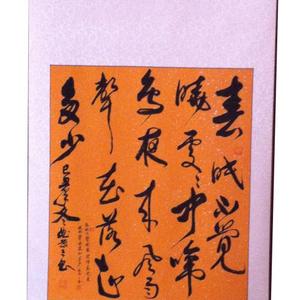 春眠不覺
曉處々聞啼
鳥夜来風雨
聲花落知
多少